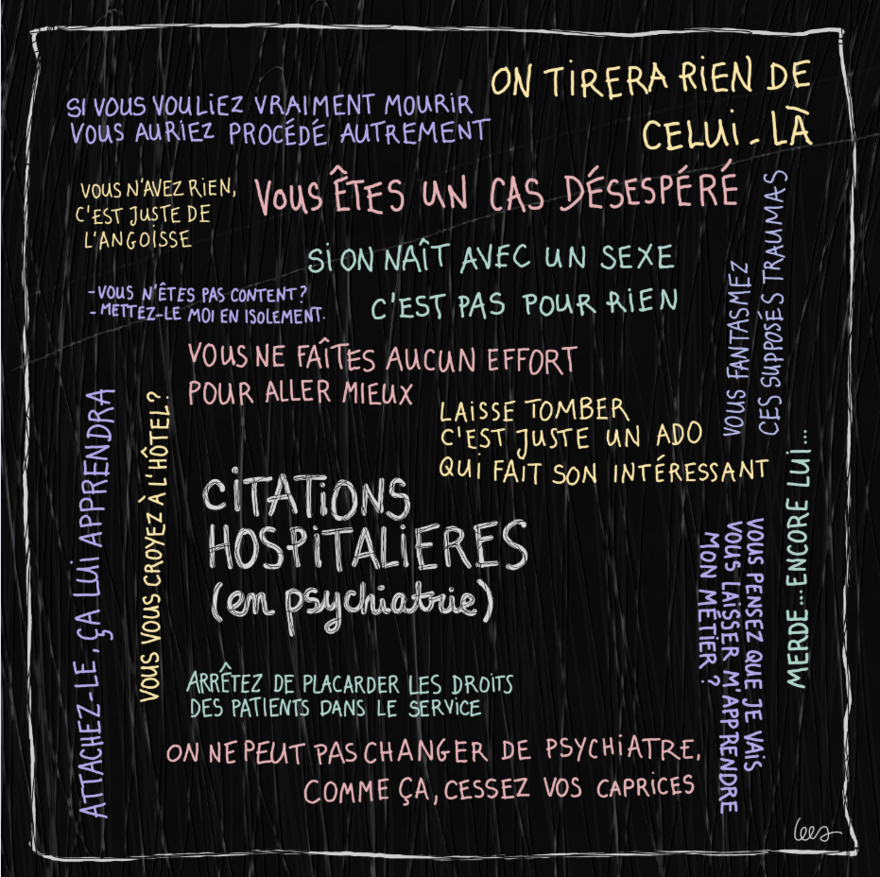 ON TIRERA RIEN DE
CELUI-LÀ
SI VOUS VOULIEZ VRAIMENT MOURIR
VOUS AURIEZ PROCÉDÉ AUTREMENT
VOUS N'AVEZ RIEN,
C'EST JUSTE DE
L'ANGOISSE
VOUS ÊTES UN CAS DÉSESPÉRÉ
SI ON NAÎT AVEC UN SEXE
C'EST PAS POUR RIEN
-VOUS N'ÊTES PAS CONTENT?
-METTEZ-LE MOI EN ISOLEMENT.
VOUS FANTASMEZ
CES SUPPOSÉS TRAUMAS
VOUS NE FAÎTES AUCUN EFFORT
POUR ALLER MIEUX
LAISSE TOMBER
C'EST JUSTE UN ADO
QUI FAIT SON INTÉRESSANT
ATTACHEZ-LE, ÇA LUI APPRENDRA
VOUS VOUS CROYEZ À L'HÔTEL?
CITATIONS
HOSPITALIERES
(en psychiatrie)
MERDE...ENCORE LUI...
VOUS PENSEZ QUE JE VAIS
VOUS LAISSER M'APPRENDRE
MON MÉTIER ?
ARRÊTEZ DE PLACARDER LES DROITS
DES PATIENTS DANS LE SERVICE
ON NE PEUT PAS CHANGER DE PSYCHIATRE,
COMME ÇA, CESSEZ VOS CAPRICES
lees